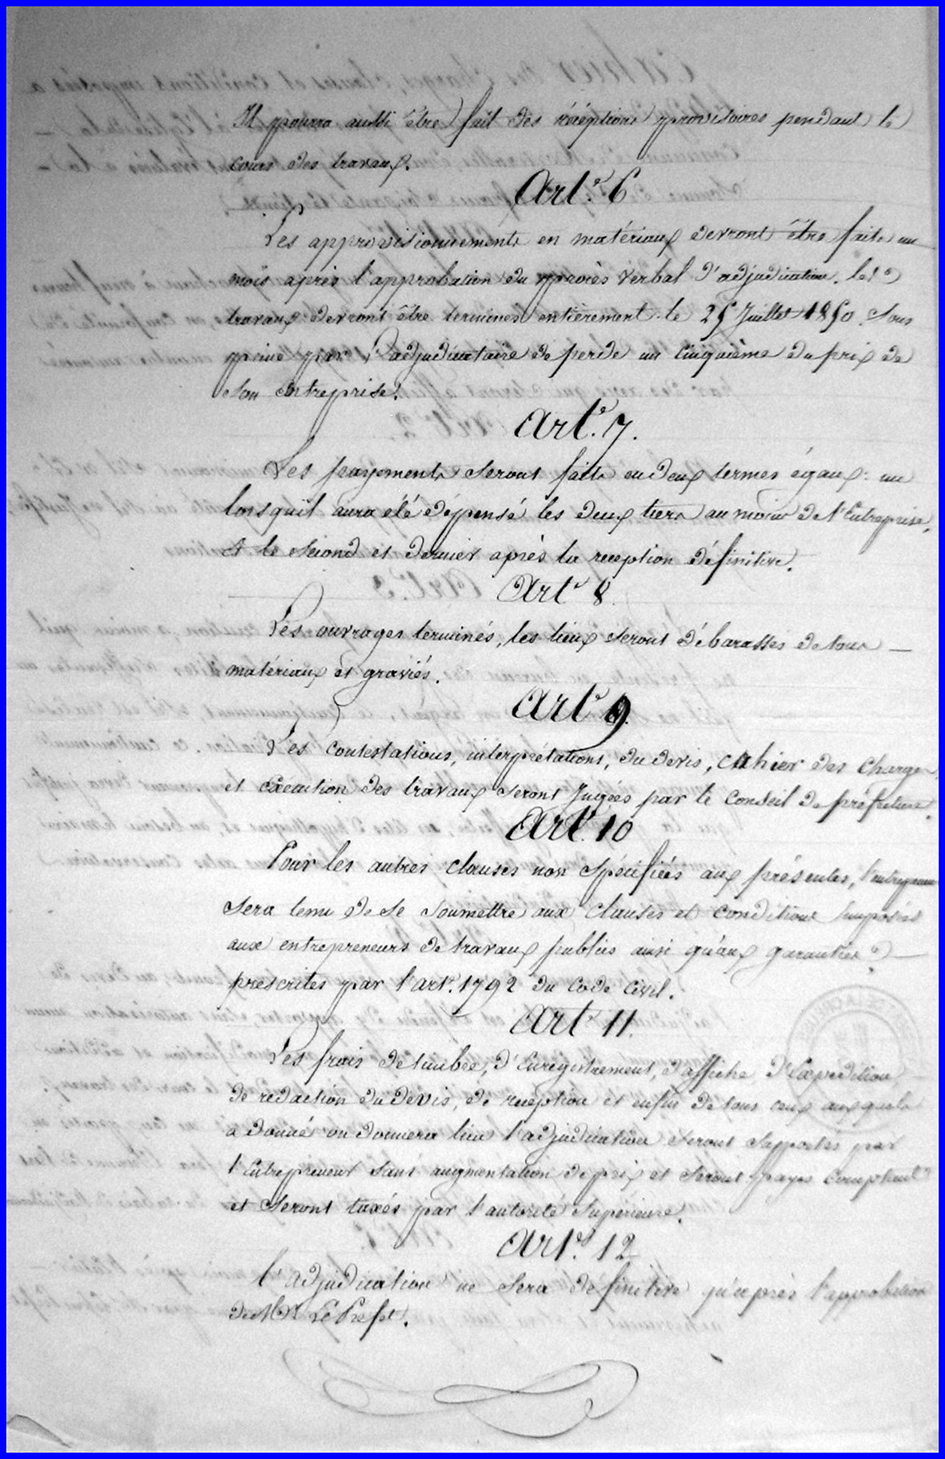 Il pourra aussi être fait des réceptions provisoires pendant le
cours des travaux.
Art.e 6
Les approvisionnements en matériaux devront être faits un
mois après l'approbation du procès verbal d'adjudication. les
travaux devront être terminés entièrement le 25 Juillet 1850. Sous
peine par l'adjudicataire de perde un cinquième du prix de
son entreprise.
Art.e 7.
Les payements seront faits en deux termes égaux: un
lorsqu'il aura été dépensé les deux tiers au moins de l'Entreprise,
et le second et dernier après la reception définitive.
Art.e 8.
Les ouvrages terminés, les lieux seront débarassés de tous
matériaux et graviés.
Art.e 9.
Les contestations, interprétations, du devis, cahier des charges
et éxécution des travaux seront Jugées par le Conseil de préfecture.
Art.e 10
Pour les autres clauses non spécifiées aux présentes, l'entrepreneur
sera tenu de se soumettre aux clauses et conditions imposées
aux entrepreneurs de travaux publics ainsi qu'aux garanties
prescrites par l'art. 1792 du Code Civil.
Art.e 11.
Les frais de timbre, d'Enregistrement, d'affiche d'Expédition
de rédaction du devis, de réception et enfin de tous ceux auxquels
a donné ou donnera lieu l'adjudication seront supportés par
l'Entrepreneur sans augmentation de prix et seront payés comptant
et seront taxés par l'autorité Supérieure.
Art.e 12
L'adjudication ne sera définitive qu'après l'approbation
de Mr Le Préfet.